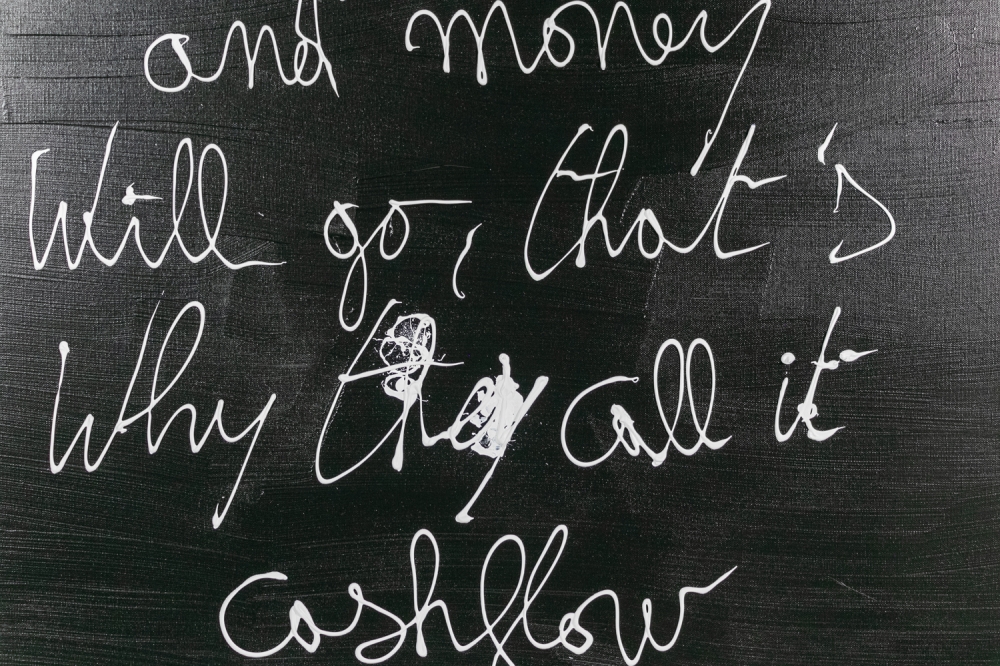 and money
Will go, that's
Why they call it
Cashflow